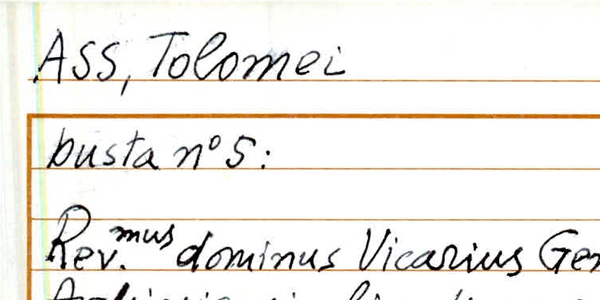 ASS, Tolomei
busta n° 5:
Rev.mus dominus Vicarius Gen